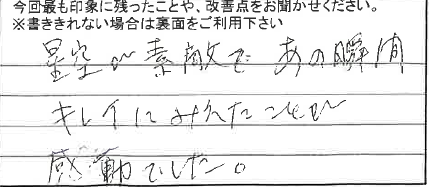 今回最も印象に残ったことや、改善点をお聞かせください。
※書ききれない場合は裏面をご利用下さい
星空が素敵で あの瞬間
キレイにみれたことが
感動でした。